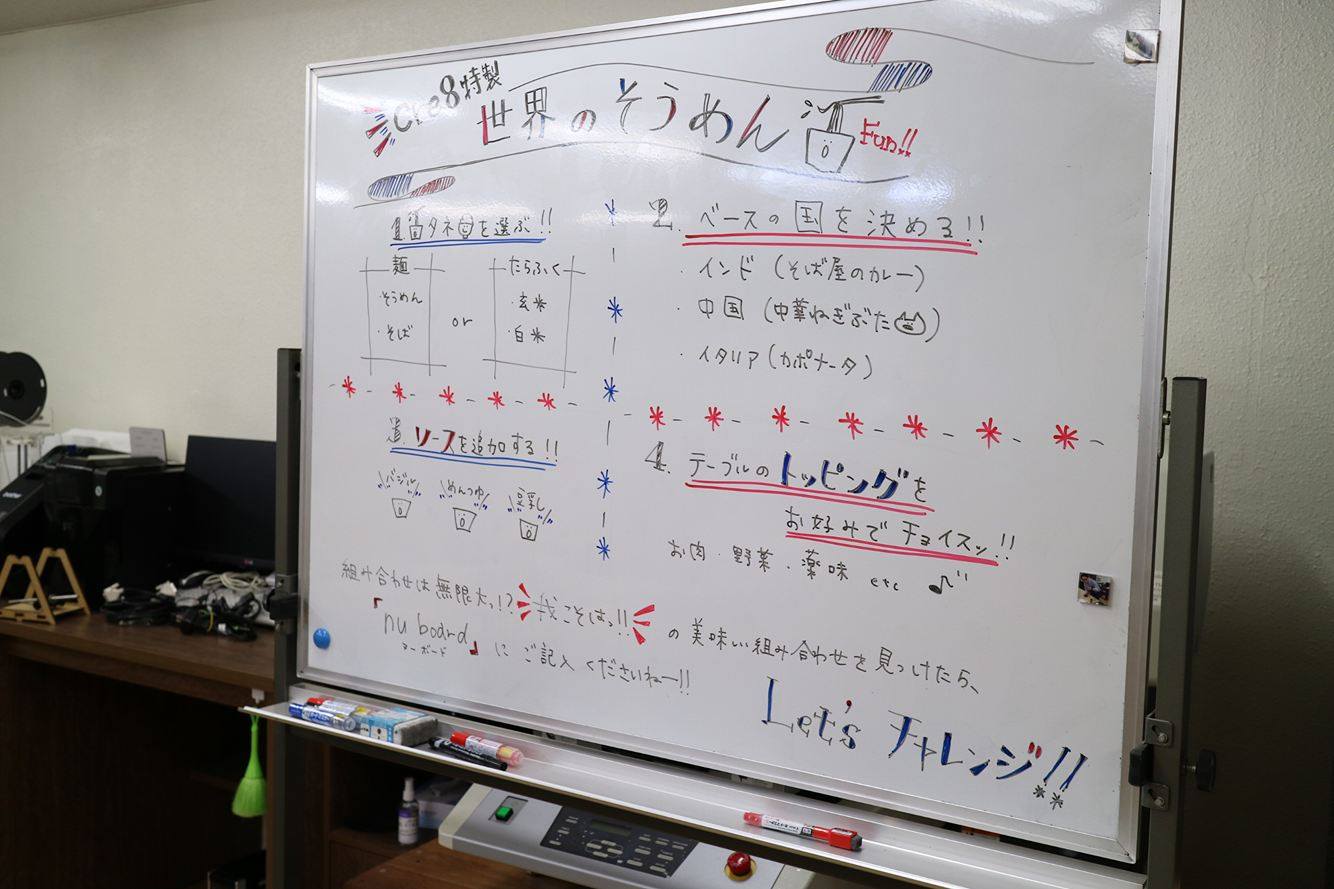 Cre8特製
世界のそうめん
Fun!!
1. タネを選ぶ!!
麺
・そうめん
・そば
or
たらふく
・玄米
・白米
2. ベースの国を決める!!
・インド (そば屋のカレー)
・中国 (中華ねぎぶた)
・イタリア (カポナータ)
3. ソースを追加する!!
バジル
めんつゆ
豆乳
4. テーブルのトッピングを
お好みで チョイスッ!!
お肉・野菜・薬味 etc
組み合わせは無限大っ!? 我こそはっ!! の美味しい組み合わせを見つけたら、
「nu board」に ご記入 くださいねー!!
ヌーボード
Let's チャレンジ!!
brother